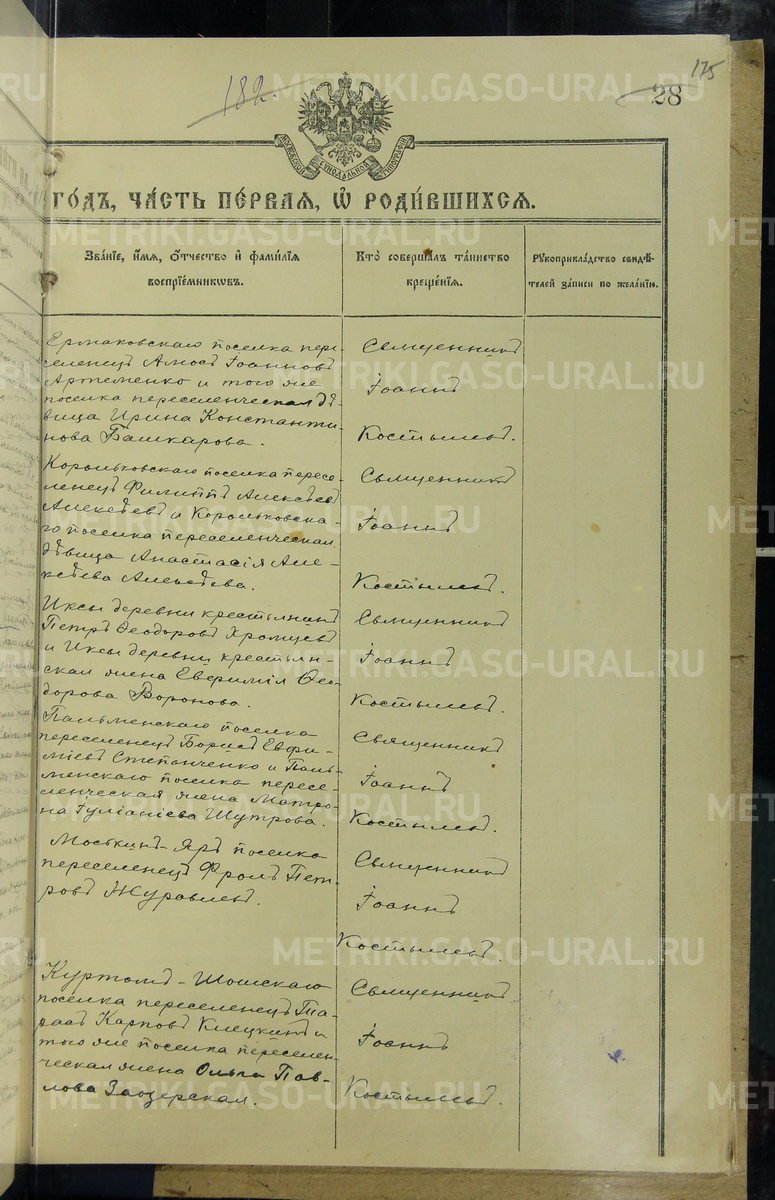 182.
175
28
МОСКОВСКОЙ СѴНОДАЛЬНОЙ ТИПОГРАФІИ
го́дъ, ча́сть пе́рваѧ, ѡ҆ роди́вшихсѧ.
Зва́нїе, и҆́мѧ, ѻ҆́тчество и҆ фами́лїѧ
воспрїе́мникѡвъ.
Кто̀ соверша́лъ та́инство
креще́нїѧ.
Рꙋкоприкла́дство свидѣ́-
телей за́писи по жела́нїю.
Ермаковскаго поселка пере-
селенецъ Амосъ Іоанновъ
Артеменко и того же
поселка переселенческая дѣ-
вица Ирина Константи-
нова Башкарова.
Священникъ
Іоаннъ
Костылевъ.
Корольковскаго поселка пересе-
ленецъ Филиппъ Алексѣевъ
Алексѣевъ и Корольковска-
го поселка переселенческая
дѣвица Анастасія Але-
ксѣева Алексѣева.
Священникъ
Іоаннъ
Костылевъ.
Иксы деревни крестьянинъ
Петръ Ѳеодоровъ Хромцевъ
и Иксы деревни крестьян-
ская жена Евфимія Ѳео-
дорова Воронова.
Священникъ
Іоаннъ
Костылевъ.
поселка
переселенецъ Борисъ Евфи-
міевъ Степанченко и Паль-
менскаго поселка пересе-
ленческая жена Матро-
на Іуліаніева Шутрова.
Священникъ
Іоаннъ
Костылевъ.
Яръ поселка
переселенецъ Фролъ Пет-
ровъ Журавлевъ.
Священникъ
Іоаннъ
Костылевъ.
Шошскаго
поселка переселенецъ Та-
расъ Карповъ Клецкинъ и
того же поселка переселен-
ческая жена Ольга Пав-
лова Заозерская.
Священникъ
Іоаннъ
Костылевъ.
METRIKI.GASO-URAL.RU